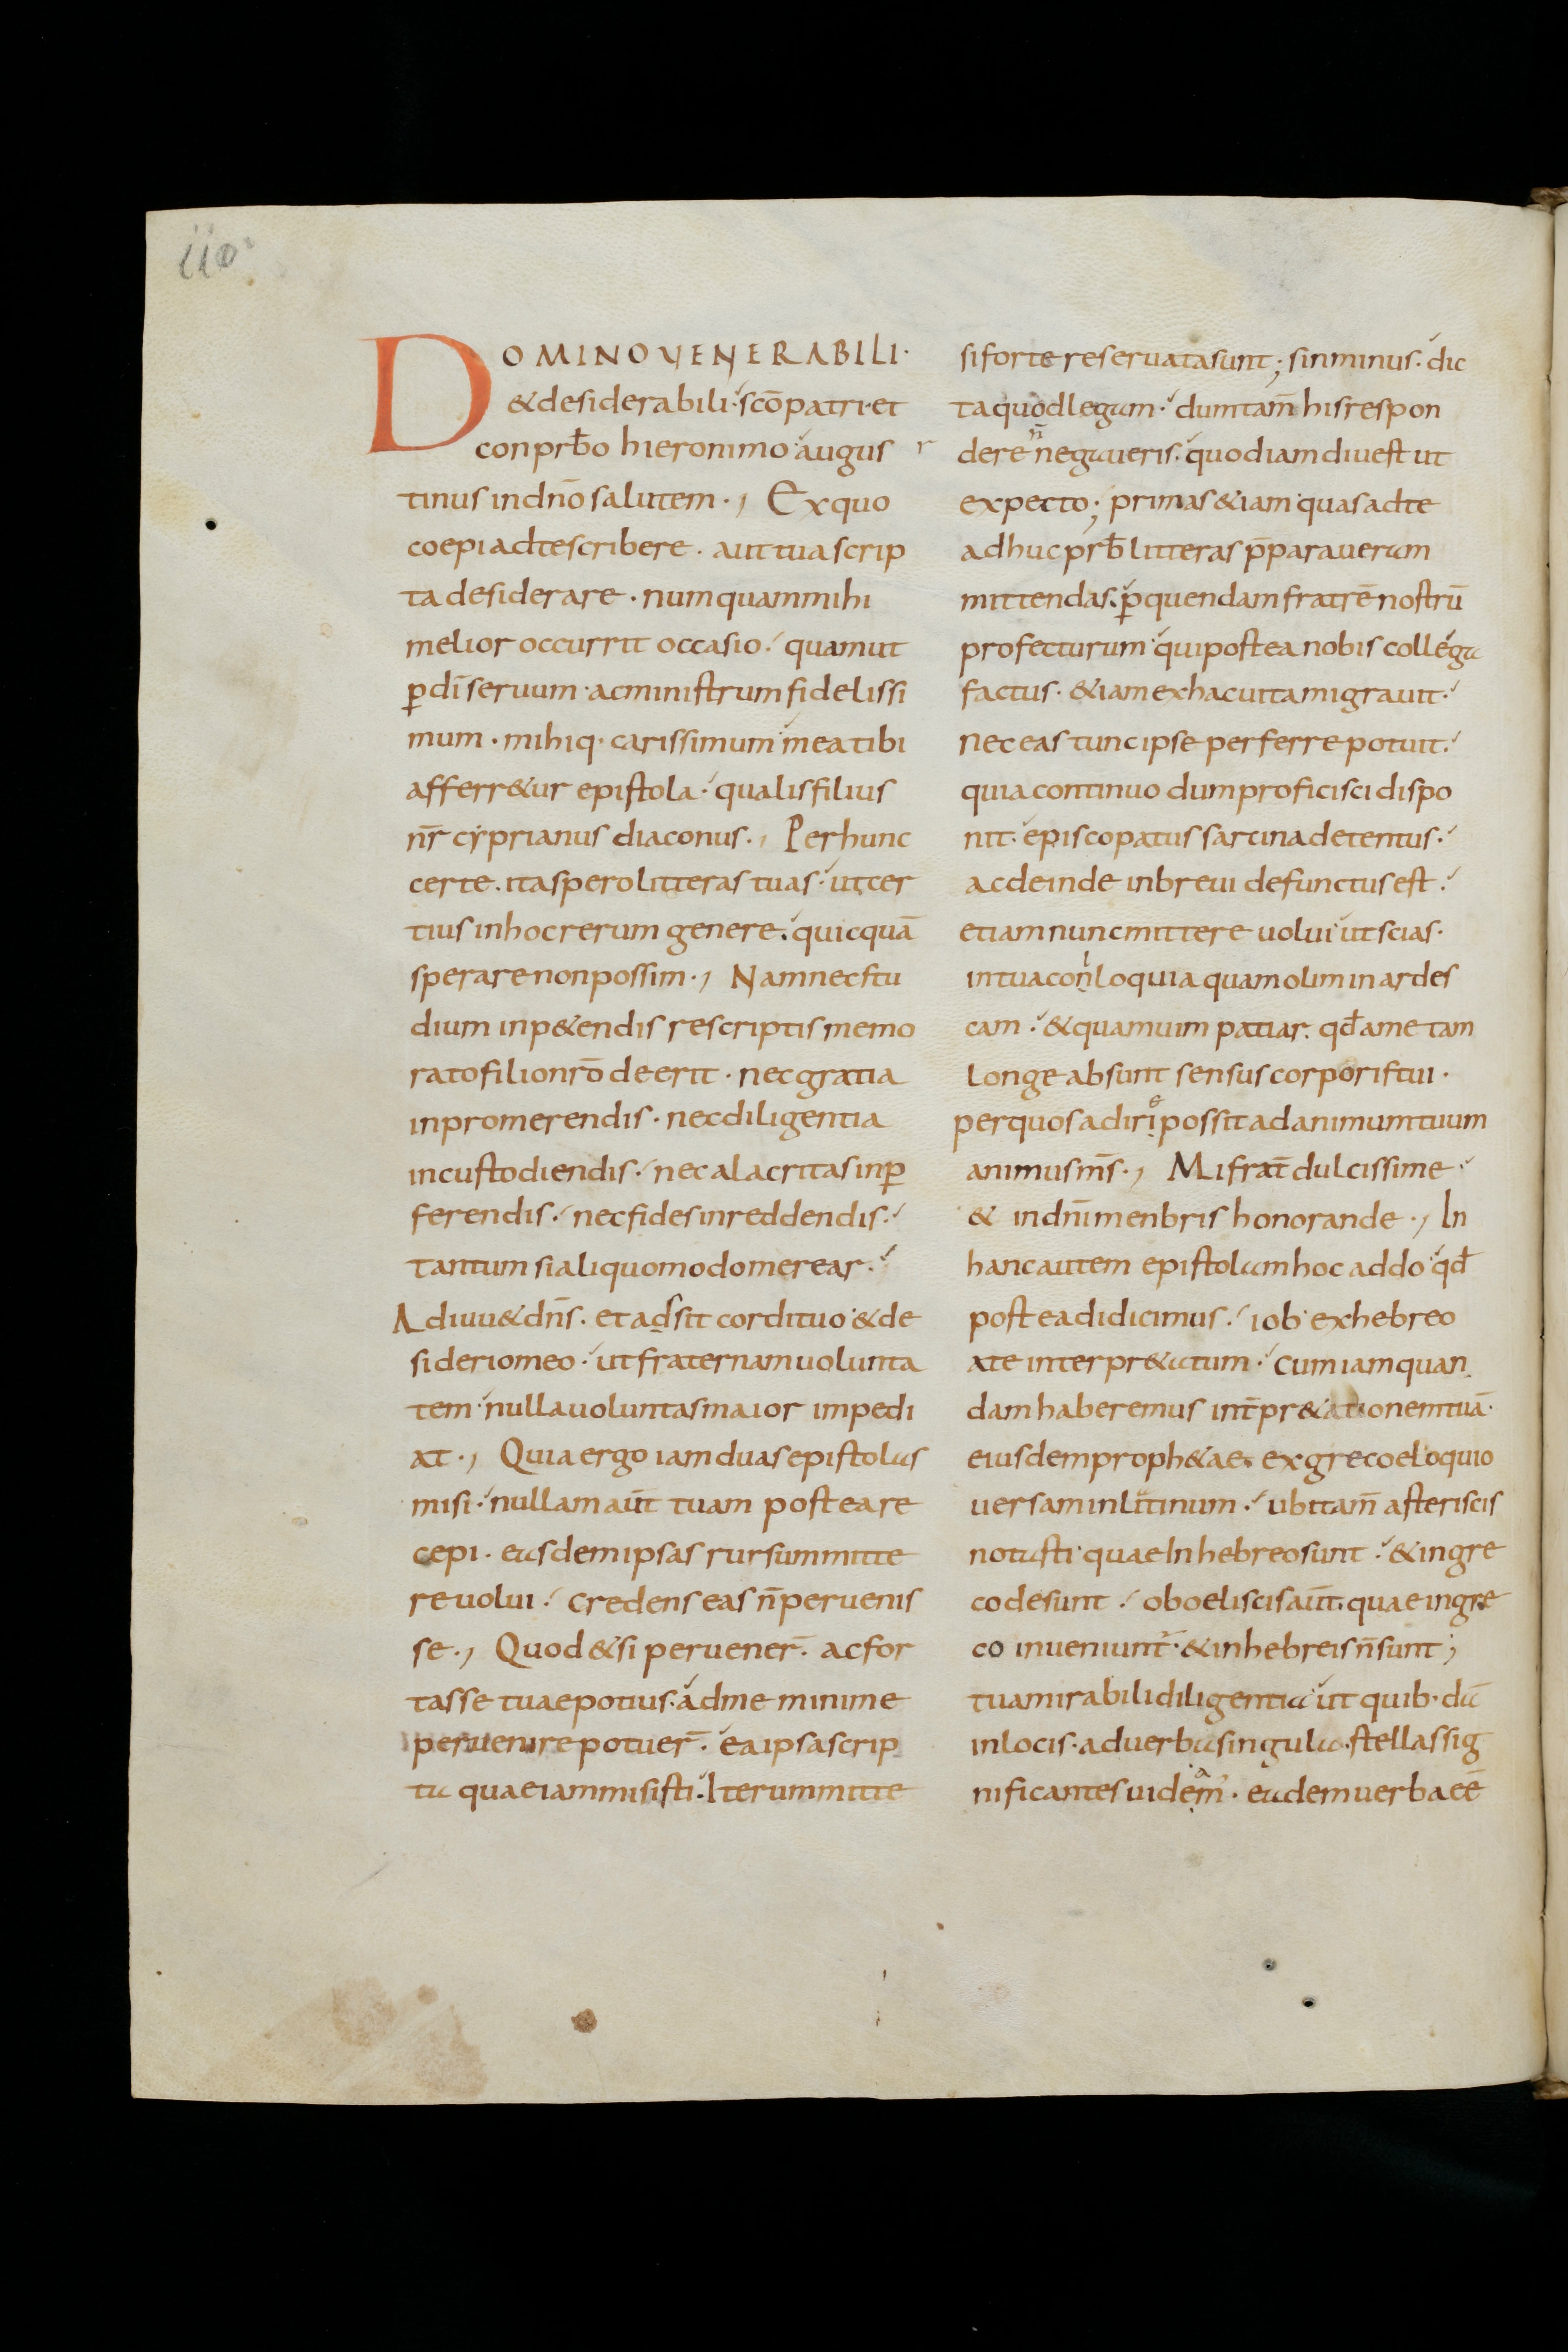 DOMINO VENERABILI·
& desiderabili· scō patri· et
conprƀo hieronimo· augus
tinus in dn̄o salutem·, Ex quo
coepi ad te scribere· aut tua scrip
ta desiderare· numquam mihi
melior occurrit occasio· quam ut
ꝑ dī seruum· ac ministrum fidelissi
mum· mihiq· carissimum· mea tibi
afferr&ur epistola· qualis filius
nr̄ cyprianus diaconus·, Per hunc
certe· ita spero litteras tuas· ut cer
tius in hoc rerum genere· quicquā
sperare non possim·, Nam nec stu
dium in p&endis rescriptis memo
rato filio nrō deerit· nec gratia
in promerendis· nec diligentia
in custodiendis· nec alacritas in ꝑ
ferendis· nec fides in reddendis·
tantum si aliquo modo merear·
Adiuu& dn̄s· et adsit cordi tuo· & de
siderio meo· ut fraternam uolunta
tem· nulla uoluntas maior impedi
at·, Quia ergo iam duas epistolas
misi· nullam aūt tuam postea re
cepi· easdem ipsas rursum mitte
re uolui· credens eas n̄ peruenis
se·, Quod & si peruener̄· ac for
tasse tuae potius· ad me minime
peruenire potuer̄· ea ipsa scrip
ta quae iam misisti· Iterum mitte
si forte reseruata sunt; sin minus· dic
ta quod legam· dum tam̄ his respon
dere n̄ n̄ negaueris· quod iam diu est ut
expecto; primas &iam· quas ad te
adhuc prƀ litteras p̄paraueram
mittendas· ꝑ quendam fratrē nostrū
profecturum· qui postea nobis collega
factus· &iam ex hac uita migrauit·
nec eas tunc ipse perferre potuit·
quia continuo dum proficisci dispo
nit· episcopatus sarcina detentus·
ac deinde in breui defunctus est·
etiam nunc mittere uolui· ut scias·
in tua conloquia quam olim inardes
cam· & quam uim patiar· qđ a me tam
longe absunt sensus corporis tui·
per quos adirie possit ad animum tuum
animus ms̄·, Mi frat̄ dulcissime·
& in dn̄i menbris honorande·, In
hanc autem epistolam hoc addo· qđ
postea didicimus· iob· ex hebreo
a te interpr&atum· cum iam quan
dam haberemus int̄pr&ationem tuā·
eiusdem proph&ae· ex greco eloquio
uersam in latinum· ubi tam̄ asteriscis
notasti· quae In hebreo sunt· & in gre
co desunt· oboeliscis aūt· quae in gre
co inueniunt̄· & in hebreis n̄ sunt;
tua mirabili diligentia· ut quib· dā
in locis· ad uerba singula· stellas sig
nificantes uidēam̄· eadem uerba eē